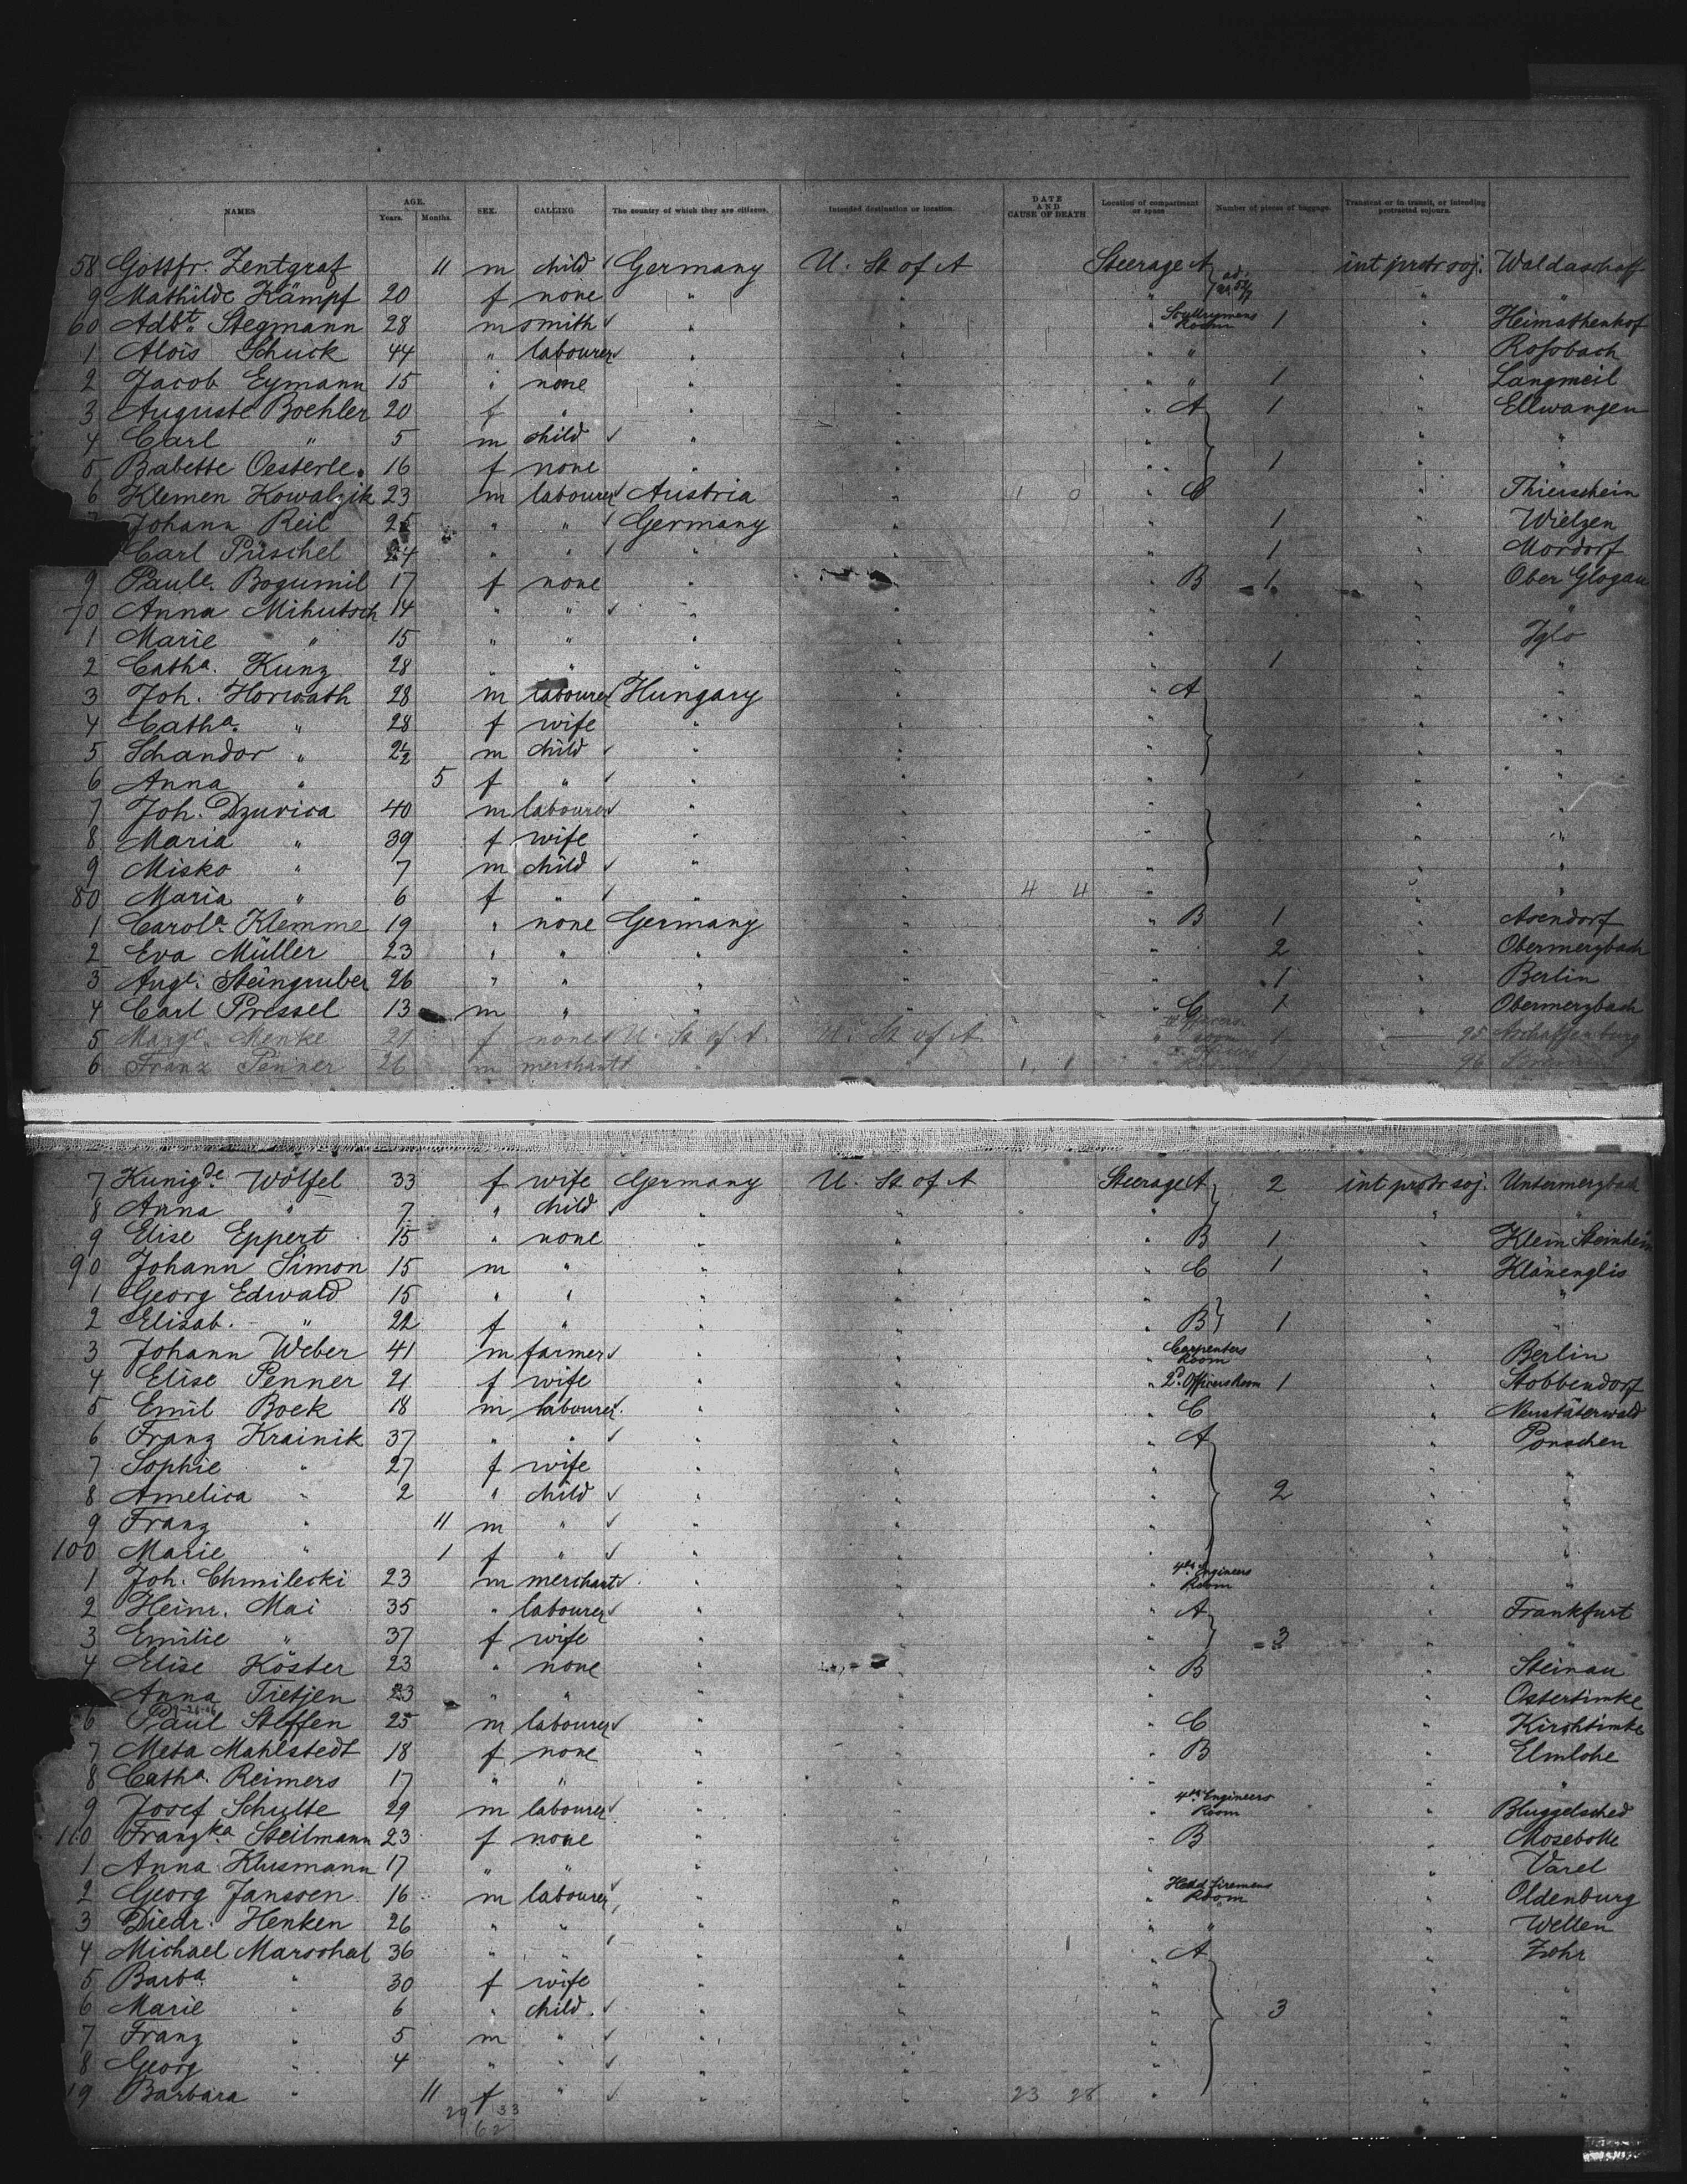 NAMES AGE. Years. Months. SEX. CALLING The country of which they are citizens. Intended destination or location. DATE AND CAUSE OF DEATH Location of compartment or space Number of pieces of baggage. Transient or in transit, or intending protracted sojourn.
58 Gottfr. Zentgraf 11 m child Germany U. St of A Steerage A int protr soj. Waldaschaff
9 Mathilde Kämpf 20 f none " " " " "
60 Adbt. Stegmann 28 m smith " " " Scullrymens Room 1 " Heimathenhof
1 Alois Schuck 44 " labourer " " " " " Roßbach
2 Jacob Eymann 15 " none " " " " 1 " Langmeil
3 Auguste Boehler 20 f " " " " A 1 " Ellwangen
4 Carl " 5 m child " " " " "
5 Babette Oesterle 16 f none " " " 1 " "
6 Klemen Kowalzik 23 m labourer Austria " 1 0 " C " Thierschein
Johann Reil 25 " " Germany " " 1 " Wielzen
Carl Püschel 24 " " " " " 1 " Mordorf
9 Paule. Bogumil 17 f none " " B 1 " Ober Glogau
70 Anna Mihutsch 14 " " " " " " "
1 Marie " 15 " " " " " " Iglo
2 Catha. Kunz 28 " " " " " 1 " "
3 Joh. Horwath 28 m labourer Hungary " " A " "
4 Catha. " 28 f wife " " " " "
5 Schandor " 2½ m child " " " " "
6 Anna " 5 f " " " " " "
7 Joh. Dzurica 40 m labourer " " " " "
8 Maria " 39 f wife " " " " "
9 Misko " 7 m child " " " " "
80 Maria " 6 f " " " 4 4 " " "
1 Carola. Klemme 19 " none Germany " " B 1 " Asendorf
2 Eva Müller 23 " " " " " 2 " Obermerzbach
3 Augt. Steingruber 26 " " " " " 1 " Berlin
4 Carl Pressel 13 m " " " " C 1 " Obermerzbach
5 Margt. Menke 21 f none U. St of A U. St of A " 1 95 Aschaffenburg
6 Franz Penner 26 m merchant " " 1 1 " 96
7 Kunigde. Wölfel 33 f wife Germany U. St of A Steerage A 2 int protr soj. Untermerzbach
8 Anna " 7 " child " " " " "
9 Elise Eppert 15 " none " " B 1 " Klein Steinheim
90 Johann Simon 15 m " " " " C 1 " Klänenglis
1 Georg Edwald 15 " " " " " " "
2 Elisab. " 22 f " " " " B 1 " "
3 Johann Weber 41 m farmer " " " Carpenters Room " Berlin
4 Elise Penner 21 f wife " " " 2d. Officers Room 1 " Stobbendorf
5 Emil Boek 18 m labourer " " " C " Neustäterwald
6 Franz Krainik 37 " " " " " A " Ponschen
7 Sophie " 27 f wife " " " " "
8 Amelica " 2 " child " " " 2 " "
9 Franz " 11 m " " " " " "
100 Marie " 1 f " " " " " "
1 Joh. Chmilecki 23 m merchant " " " 4th Engineers Room " "
2 Heinr. Mai 35 " labourer " " " A " Frankfurt
3 Emilie " 37 f wife " " " 3 " "
4 Elise Köster 23 " none " " B " Steinau
Anna Tietjen 23 " " " " " " Ostertimke
6 Paul Steffen 25 m labourer " " " C " Kirchtimke
7 Meta Mahlstedt 18 f none " " " B " Elmlohe
8 Catha. Reimers 17 " " " " " " "
9 Josef Schulte 29 m labourer " " " 4th Engineers Room " Bluggelsched
110 Franzka Steilmann 23 f none " " " B " Mosebolle
1 Anna Klusmann 17 " " " " " " Varel
2 Georg Janssen 16 m labourer " " " Head Firemens Room " Oldenburg
3 Diedr. Henken 26 " " " " " " " Wellen
4 Michael Marschal 36 " " " " 1 " A " Zohr
5 Barba. " 30 f wife " " " " "
6 Marie " 6 " child " " " 3 " "
7 Franz " 5 m " " " " " "
8 Georg " 4 " " " " " " "
19 Barbara " 11 f " " " 23 28 " " "
29 33
62